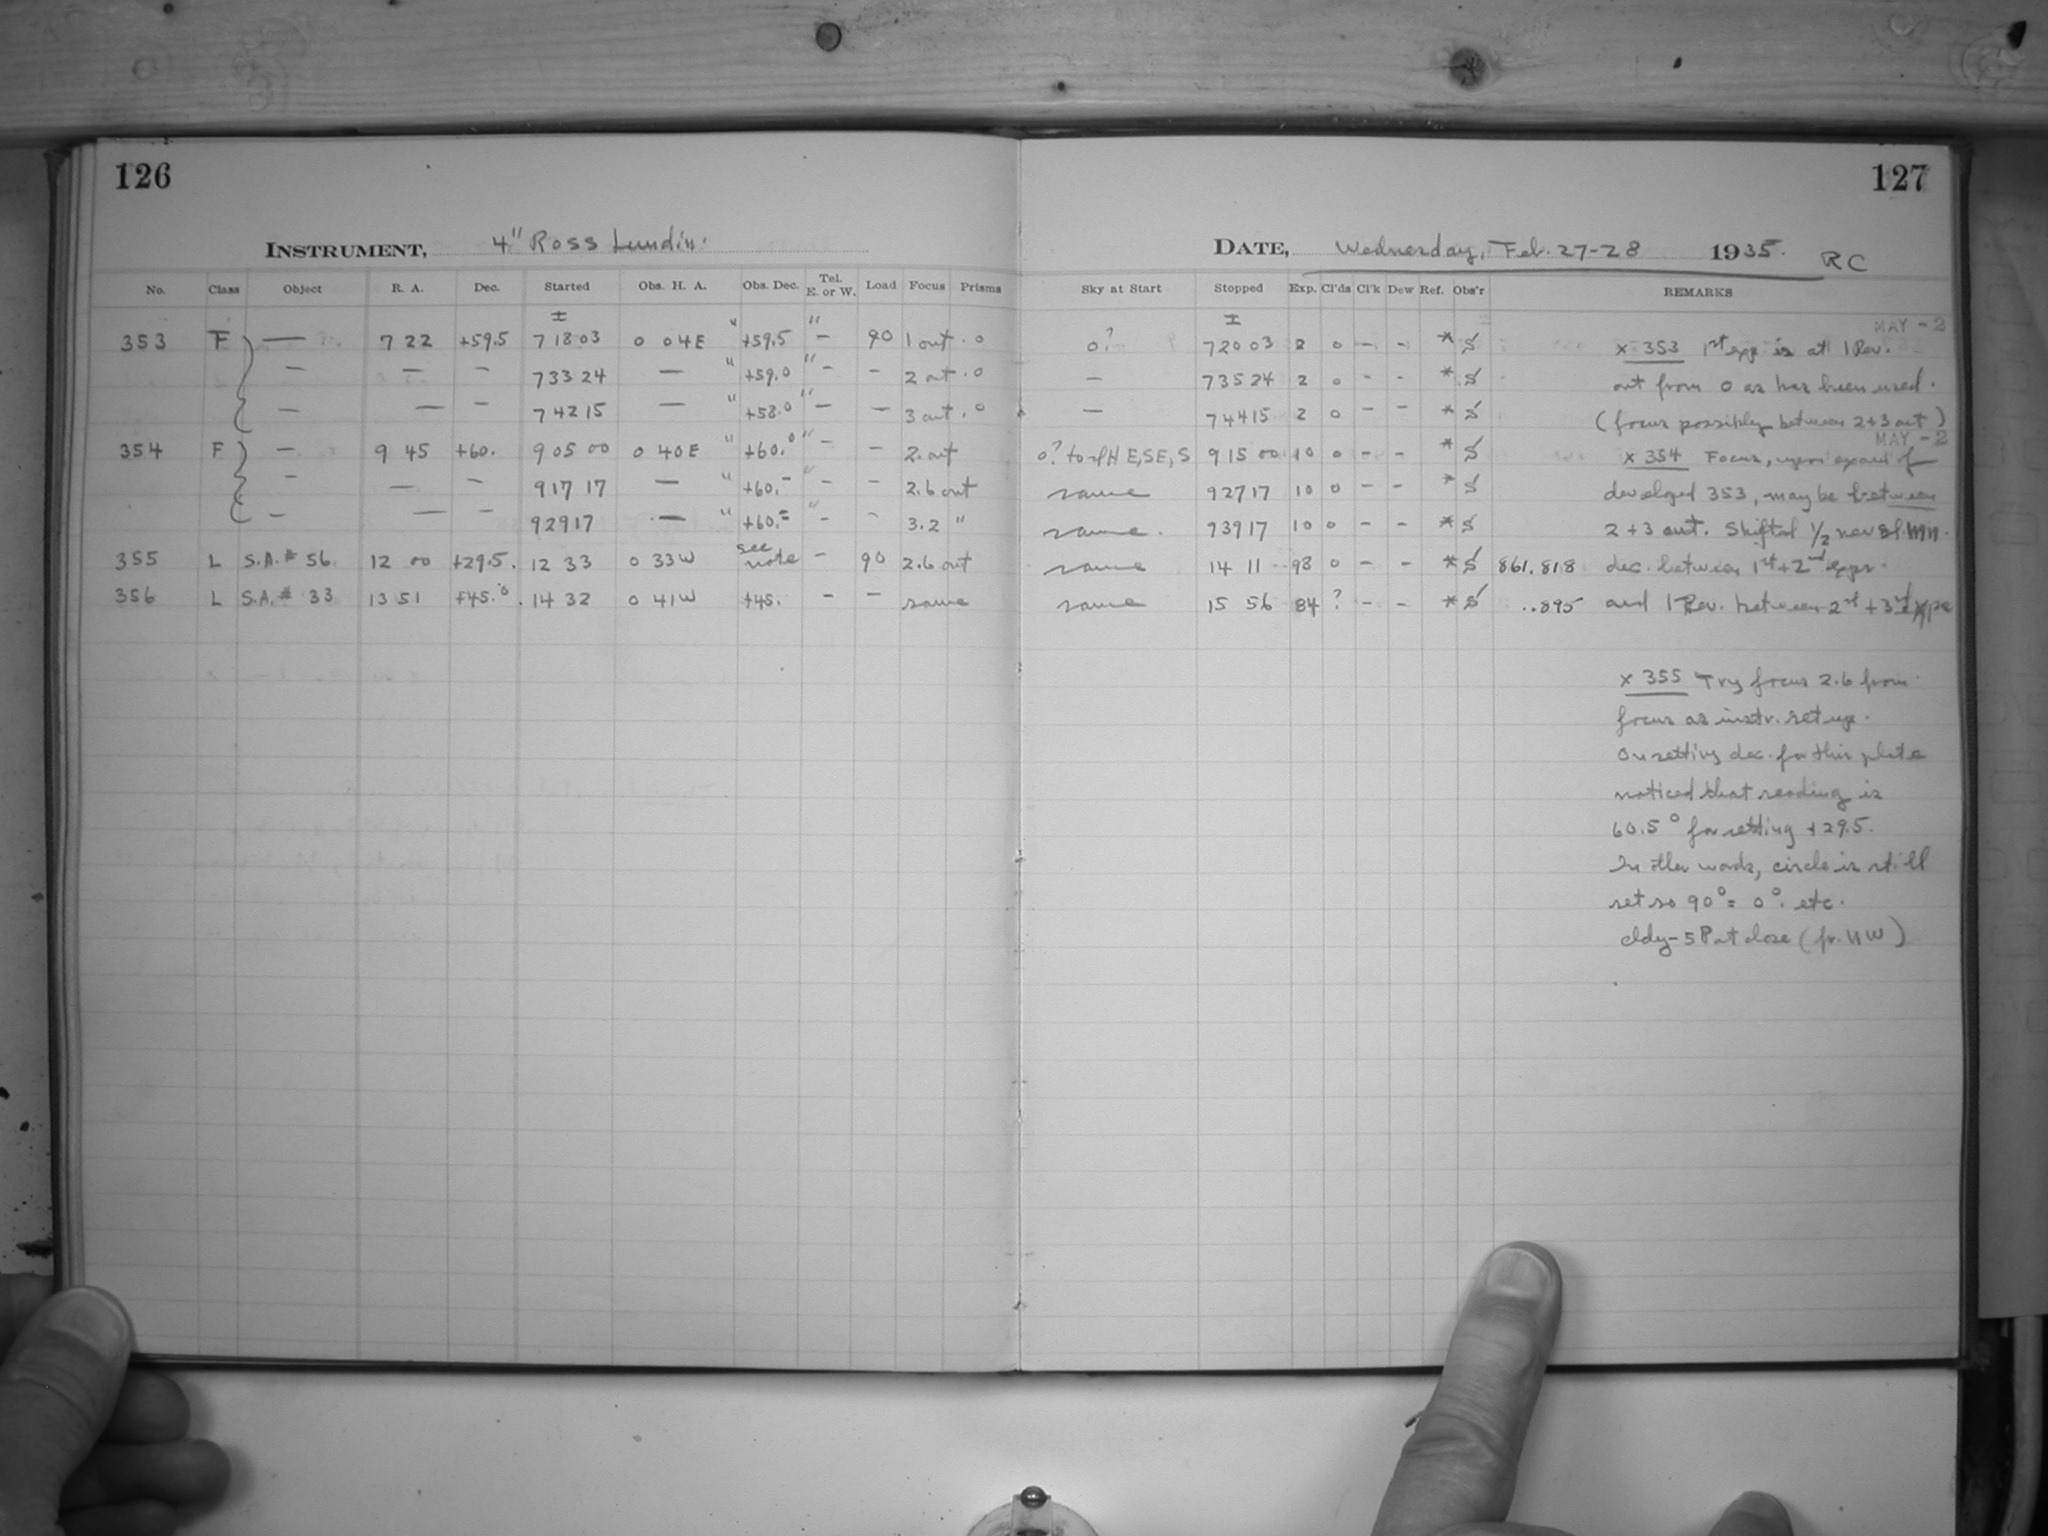 126
127
INSTRUMENT, 4" Ross Lundin.
DATE, Wednesday, Feb. 27-28 1935. RC
No. Class Object R. A. Dec. Started Obs. H. A. Obs. Dec. Tel. E. or W. Load Focus Prisms Sky at Start Stopped Exp. Cl'ds Cl'k Dew Ref. Obs'r REMARKS
± ± MAY - 2
353 F — 7 22 +59.5 7 18 03 0 04E " +59.5 " - 90 1 out . 0 0? 7 20 03 2 0 - - * S x 353 1st exp is at 1 Rev.
— — - 7 33 24 — " +59.0 " - - 2 out . 0 — 7 35 24 2 0 - - * S out from 0 as has been used.
— — - 7 42 15 — " +58.0 " - - 3 out . 0 — 7 44 15 2 0 - - * S (focus possibly between 2+3 out)
MAY - 2
354 F — 9 45 +60. 9 05 00 0 40E " +60.0 " - - 2. out 0? to H E, SE, S 9 15 00 10 0 - - * S x 354 Focus, upon exam of
— — - 9 17 17 — " +60.- " - - 2.6 out same 9 27 17 10 0 - - * S developed 353, may be between
— — - 9 29 17 — " +60.= " - - 3.2 " same. 9 39 17 10 0 - - * S 2 + 3 out. Shifted 1/2 rev sl. mn.
355 L S.A. # 56 12 00 +29.5. 12 33 0 33W see note - 90 2.6 out same 14 11 98 0 - - * S 861.818 dec. between 1st + 2nd exps.
356 L S.A. # 33 13 51 +45.0 . 14 32 0 41W +45. - - same same 15 56 84 ? - - * S ..895 and 1 Rev. between 2nd + 3rd exps
x 355 Try focus 2.6 from
focus as instr. set up.
On setting dec. for this plate
noticed that reading is
60.5° for setting +29.5.
In other words, circle is still
set so 90° = 0°. etc.
cldy - 5 P at close (fr. NW)